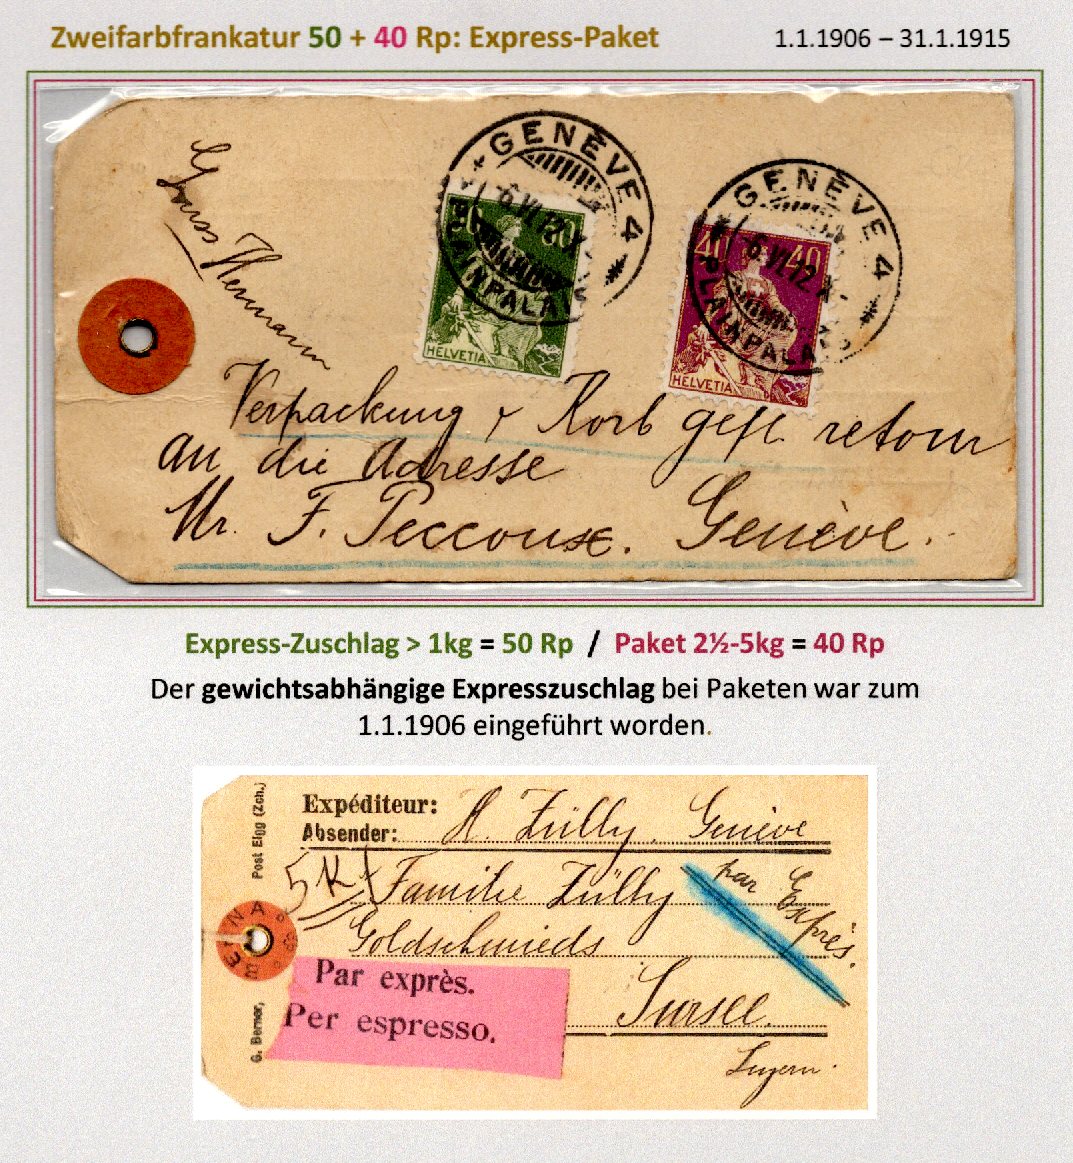 Zweifarbfrankatur 50 + 40 Rp: Express-Paket 1.1.1906 – 31.1.1915
Hermann
GENÈVE 4
6 VI 12 X
PLAINPALAIS
50 50
HELVETIA
GENÈVE 4
6 VI 12 X
PLAINPALAIS
40 40
HELVETIA
Verpackung & Korb gefl. retour
an die Adresse
Mr. F. Genève.
Express-Zuschlag > 1kg = 50 Rp / Paket 2½-5kg = 40 Rp
Der gewichtsabhängige Expresszuschlag bei Paketen war zum
1.1.1906 eingeführt worden.
Post Elgg (Zch.)
G. Berner,
Expéditeur:
Absender: A. Zülly, Genève
5 K Familie Zülly
par Exprès.
Goldschmieds
Par exprès.
Per espresso.
Sursee.
Luzern.